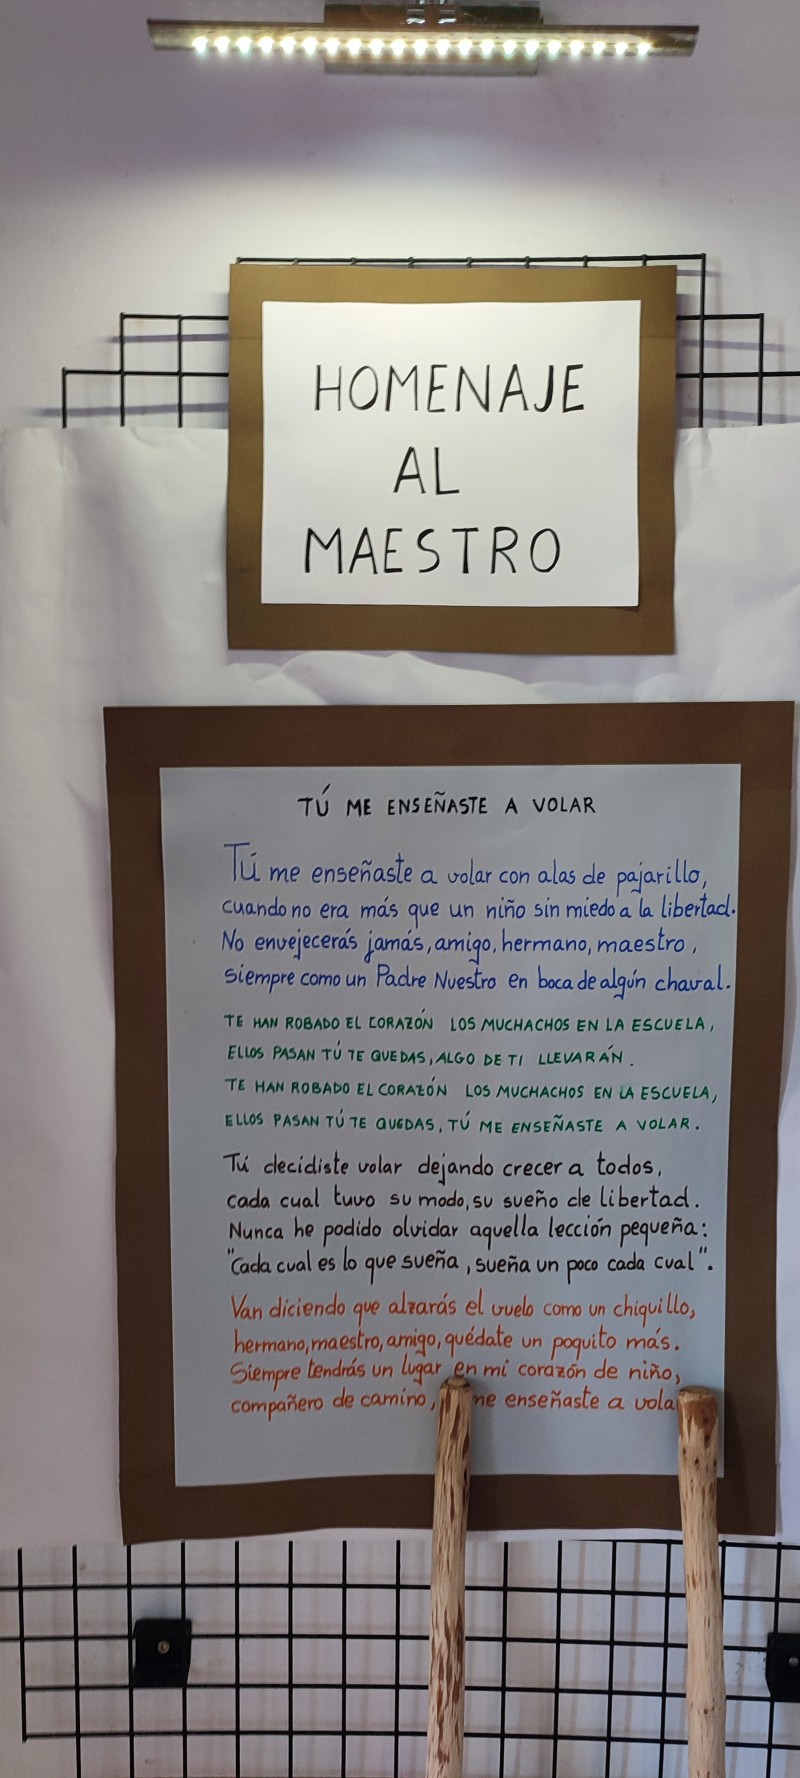 HOMENAJE
AL
MAESTRO
TÚ ME ENSEÑASTE A VOLAR
Tú me enseñaste a volar con alas de pajarillo,
cuando no era más que un niño sin miedo a la libertad.
No envejecerás jamás, amigo, hermano, maestro,
siempre como un Padre Nuestro en boca de algún chaval.
TE HAN ROBADO EL CORAZÓN LOS MUCHACHOS EN LA ESCUELA,
ELLOS PASAN TÚ TE QUEDAS, ALGO DE TI LLEVARÁN.
TE HAN ROBADO EL CORAZÓN LOS MUCHACHOS EN LA ESCUELA,
ELLOS PASAN TÚ TE QUEDAS, TÚ ME ENSEÑASTE A VOLAR.
Tú decidiste volar dejando crecer a todos,
cada cual tuvo su modo, su sueño de libertad.
Nunca he podido olvidar aquella lección pequeña:
"Cada cual es lo que sueña, sueña un poco cada cual".
Van diciendo que alzarás el vuelo como un chiquillo,
hermano, maestro, amigo, quédate un poquito más.
Siempre tendrás un lugar en mi corazón de niño,
compañero de camino, me enseñaste a vola